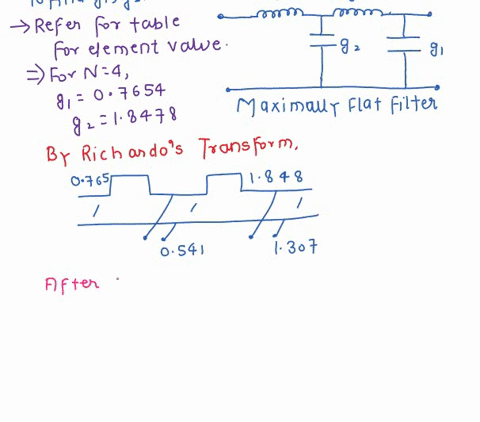 → Refer for table
for element value.
⇒ For N=4,
g₁ = 0.7654
g₂ = 1.8478
g₂
g₁
Maximally Flat Filter
By Richando's Transform,
0.765
1.848
1
1
1
0.541
1.307
After